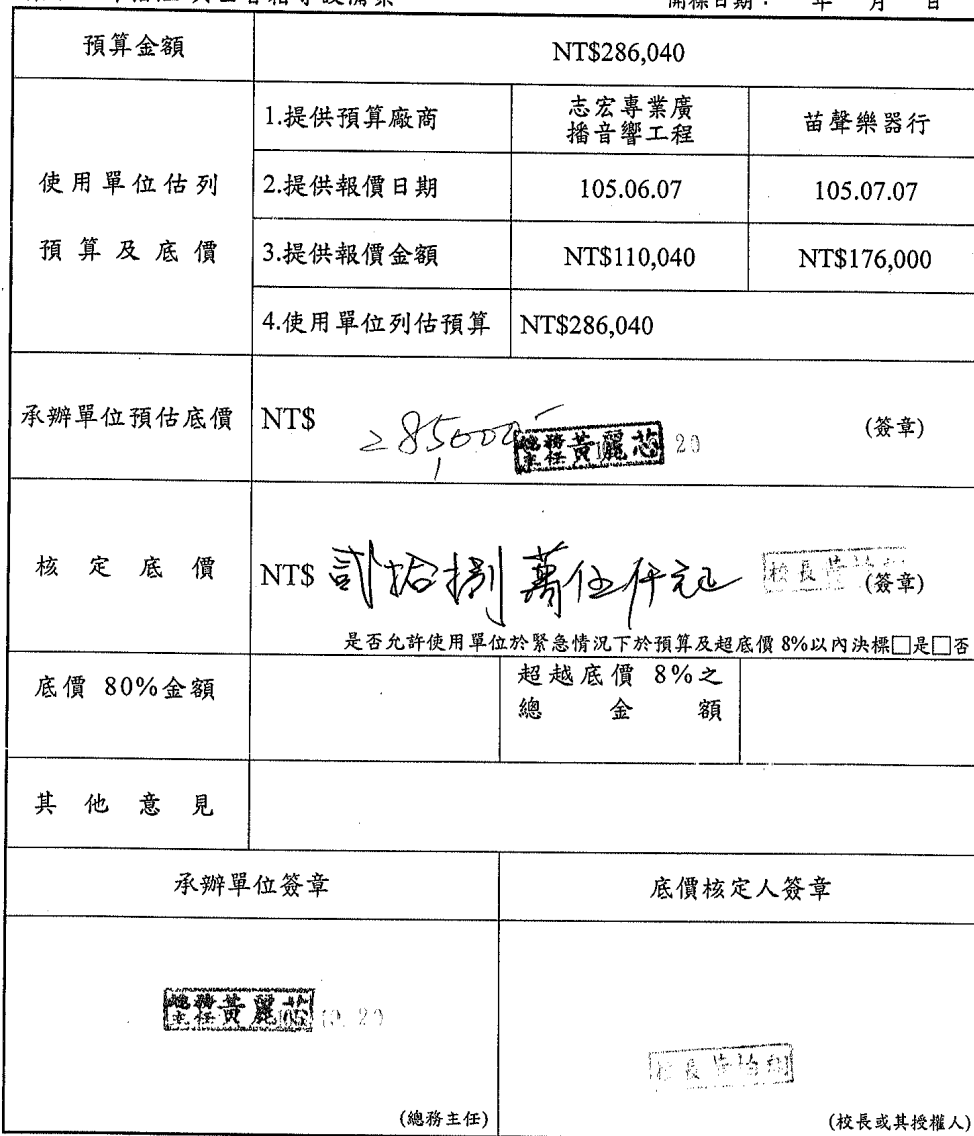 開標日期： 年 月 日
預算金額
NT$286,040
使用單位估列
預算及底價
1.提供預算廠商
志宏專業廣
播音響工程
苗聲樂器行
2.提供報價日期
105.06.07
105.07.07
3.提供報價金額
NT$110,040
NT$176,000
4.使用單位列估預算
NT$286,040
承辦單位預估底價
NT$ 285,000
總務主任 黃麗芯 20
(簽章)
核定底價
NT$ 貳拾捌萬伍仟元正
校長
(簽章)
是否允許使用單位於緊急情況下於預算及超底價 8%以內決標□是□否
底價 80%金額
超越底價 8%之
總金額
其他意見
承辦單位簽章
底價核定人簽章
總務主任 黃麗芯 105.10.20
(總務主任)
校長
(校長或其授權人)